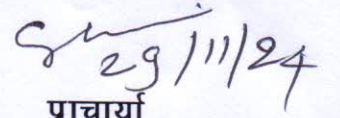 29/11/24
प्राचार्या